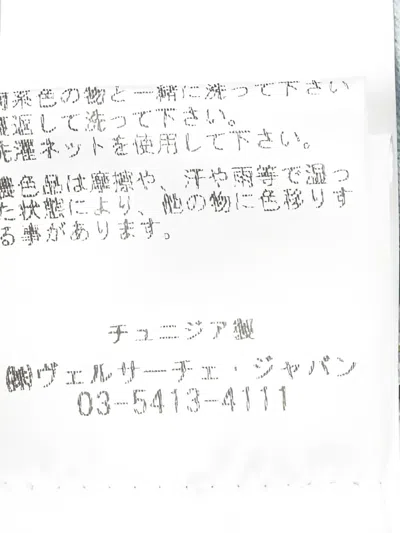 同系色の物と一緒に洗って下さい
裏返して洗って下さい。
洗濯ネットを使用して下さい。
濃色品は摩擦や、汗や雨等で湿っ
た状態により、他の物に色移りす
る事があります。
チュニジア製
㈱ヴェルサーチェ・ジャパン
03-5413-4111